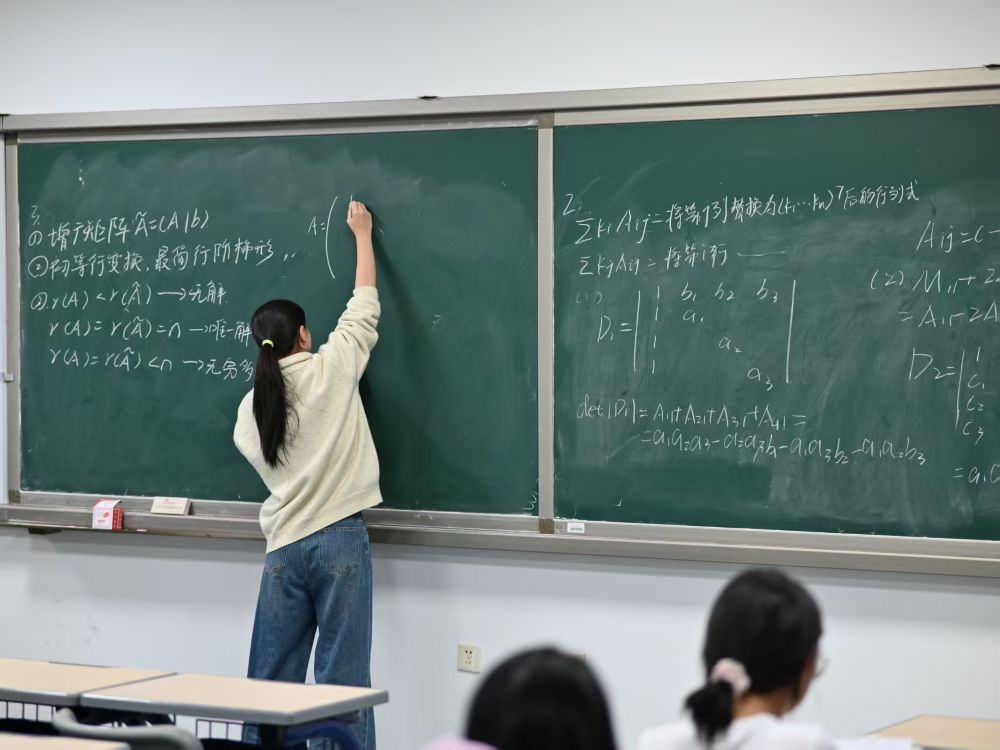 3.
① 增广矩阵 Ã=(A|b).
② 初等行变换,最简行阶梯形,...
③ r(A) < r(Ã) → 无解
r(A) = r(Ã) = n → 唯一解
r(A) = r(Ã) < n → 无穷多
A = (
2.
∑kiAij = 将第j列替换为(k1⋯kn)ᵀ后的行列式
∑kjAij = 将第i行 ——
(1)
D1 = | 1 b1 b2 b3 |
1 a1
1 a2
1 a3
det|D1| = A11+A21+A31+A41 =
= a1a2a3-a2a3b1-a1a3b2-a1a2b3
Aij=(-
(2) M11+2
= A11-2A
D2= | 1
c1
c2
c3
= a1